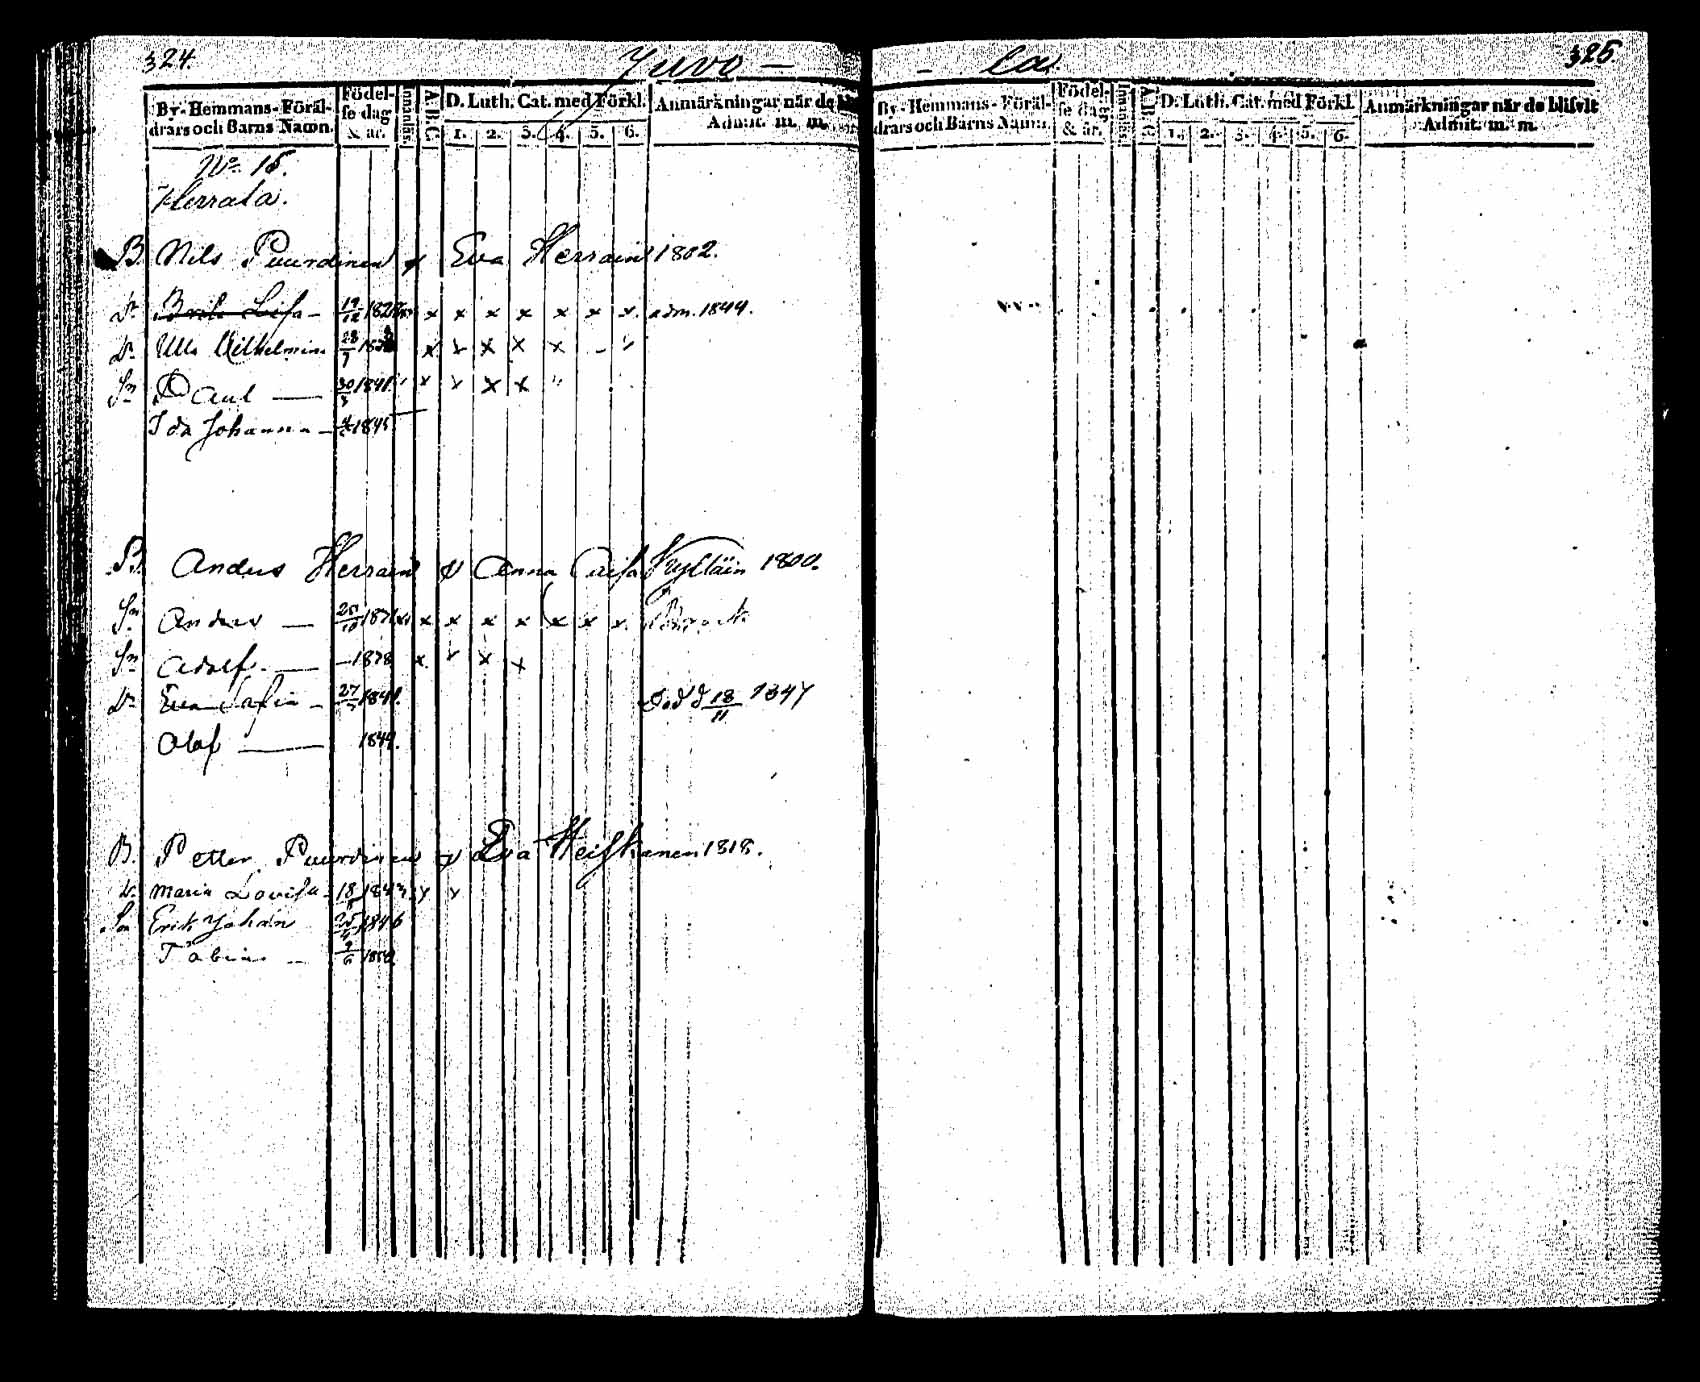 324. Juvo –
By- Hemmans- Föräl-drars och Barns Namn. Födel-se dag & år. Innanläs. A. B. C. D. Luth. Cat. med Förkl. 1. 2. 3. 4. 5. 6. Anmärkningar när de Admit. m. m.
No 15.
Herrala.
B. Nils Puurdinen & Eva Herrain 1802.
Dr Brita Lisa – 19/12 182 x x x x x x x adm. 1844.
Dr Ulla Wilhelmina 28/7 183 x x x x x – "
Sn Paul — 30/3 1841 x x x x "
Ida Johanna – 1845
B. Anders Herrain & Anna Caisa Kyltäin 1800.
Sn Anders — 25/10 183 x x x x x x x
Sn Adolf. — – 1838 x x x x
Dr Eva Safia – 27 1841. Död d 18/11 1847
Olof — 1844.
B. Petter Puurdinen & Eva Heiskanen 1818.
Dr Maria Lovisa – 18 1843. x x
Sn Erik Johan 25 1846
Tobias – 9/6 1850
– la 325.
By- Hemmans- Föräl-drars och Barns Namn. Födel-se dag & år. Innanläs. A. B. C. D. Luth. Cat. med Förkl. 1. 2. 3. 4. 5. 6. Anmärkningar när de blifvit Admit. m. m.